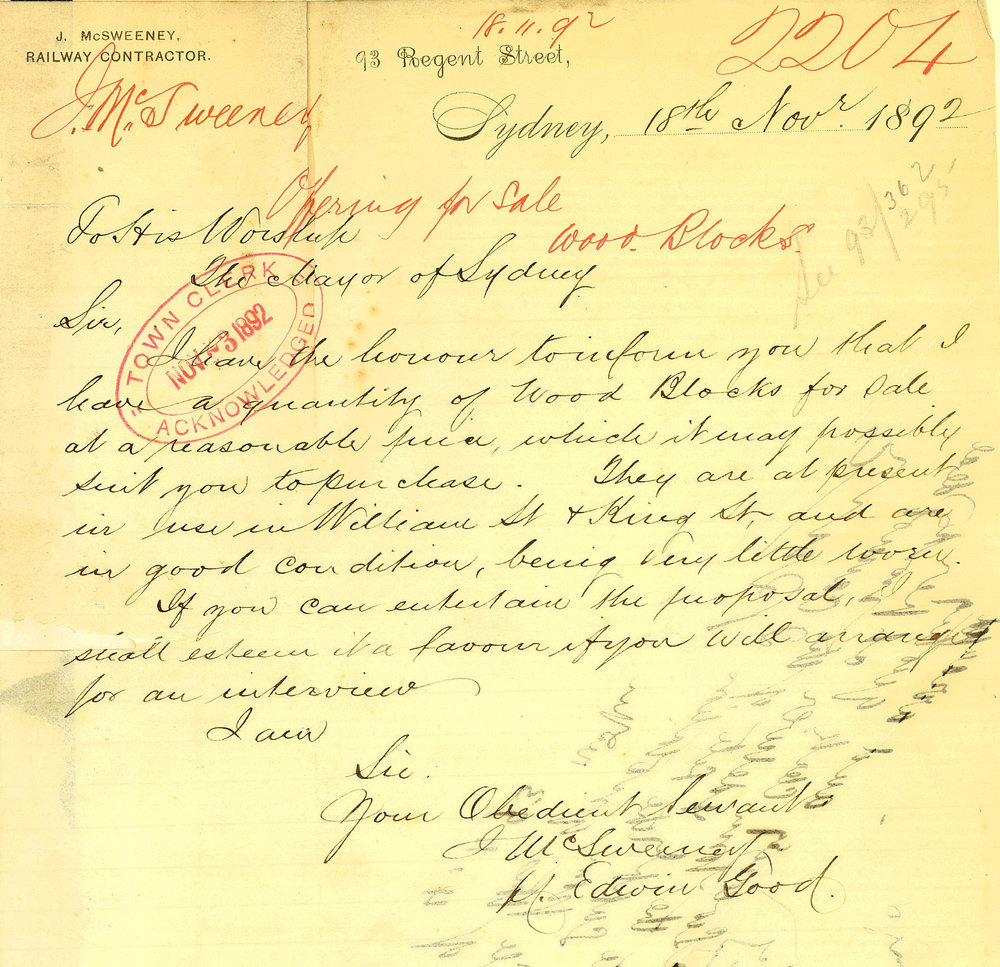 J. McSWEENEY,
RAILWAY CONTRACTOR.
18.11.92
2204
93 Regent Street,
J. McSweeney
Sydney, 18th Novr. 1892
Offering for Sale
Wood Blocks.
See 93/362
295
To His Worship
The Mayor of Sydney
TOWN CLERK
NOV 23 1892
ACKNOWLEDGED
Sir,
I have the honour to inform you that I
have a quantity of Wood Blocks for sale
at a reasonable price, which it may possibly
suit you to purchase. They are at present
in use in William St & King St, and are
in good condition, being very little worn.
If you can entertain the proposal, I
shall esteem it a favour if you will arrange
for an interview
I am
Sir.
Your Obedient Servant
J McSweeney
H. Edwin Good.